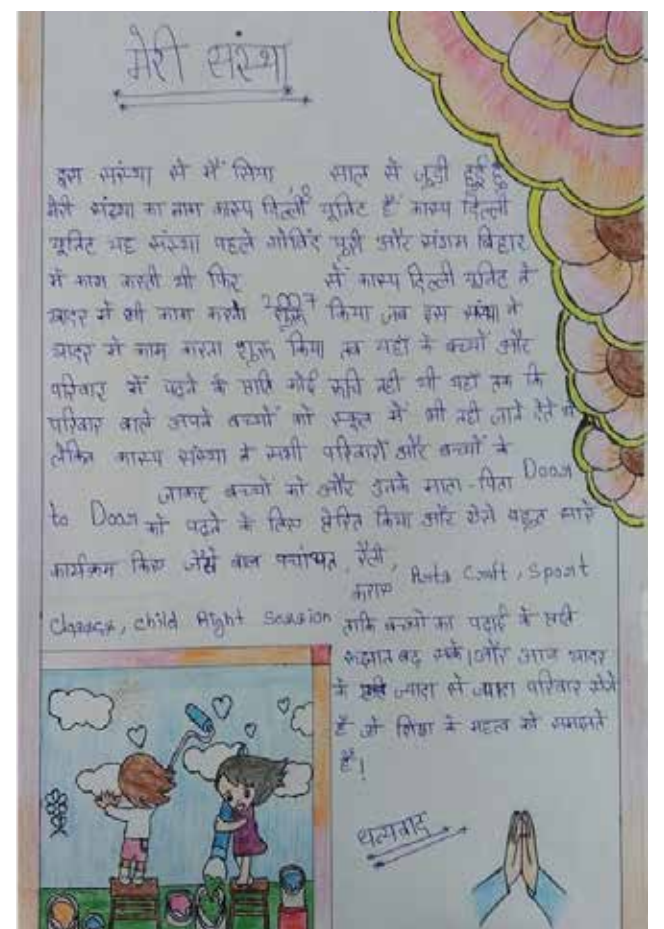 मेरी संस्था
इस संस्था से मैं सिया साल से जुडी हुई हूँ
मेरी संस्था का नाम कास्प दिल्ली यूनिट है कास्प दिल्ली
यूनिट यह संस्था पहले गोविंद पूरी और संगम बिहार
में काम करती थी फिर 2007 में कास्प दिल्ली यूनिट ने
खादर में भी काम करना शुरू किया जब इस संस्था ने
खादर में काम करना शुरू किया तब यहाँ के बच्चों और
परिवार में पढ़ने के प्रति कोई रूचि नही थी यहाँ तक कि
परिवार वाले अपने बच्चों को स्कूल में भी नही जाने देते थे
लेकिन कास्प संस्था ने सभी परिवारों और बच्चों के
Door
जाकर बच्चों को और उनके माता-पिता
to Door को पढ़ने के लिए प्रेरित किया और ऐसे बहुत सारे
कार्यक्रम किए जैसे बाल पचांयत, रैली,
कराए Arts Craft, Sport
Classes, Child Right Session ताकि बच्चों का पढ़ाई के प्रति
रूझान बढ़ सके। और आज खादर
के ज्यादा से ज्यादा परिवार ऐसे
है जो शिक्षा के महत्व को समझते
है।
धन्यवाद